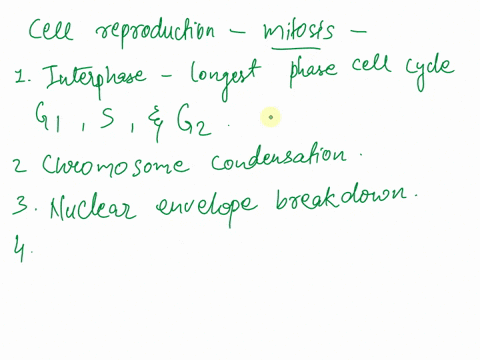 Cell reproduction - mitosis -
1. Interphase - longest phase cell cycle
G1, S, & G2.
2 Chromosome condensation.
3. Nuclear envelope breakdown.
4.